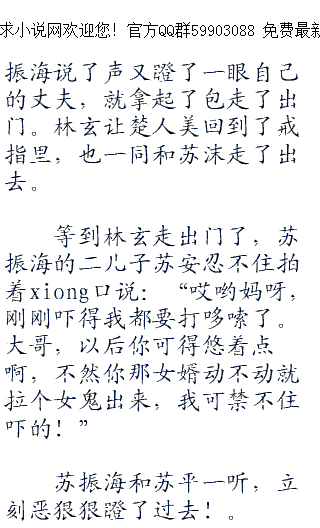 求小说网欢迎您！官方QQ群59903088 免费最新
振海说了声又蹬了一眼自己
的丈夫，就拿起了包走了出
门。林玄让楚人美回到了戒
指里，也一同和苏沫走了出
去。
等到林玄走出门了，苏
振海的二儿子苏安忍不住拍
着xiong口说：“哎哟妈呀，
刚刚吓得我都要打哆嗦了。
大哥，以后你可得悠着点
啊，不然你那女婿动不动就
拉个女鬼出来，我可禁不住
吓的！”
苏振海和苏平一听，立
刻恶狠狠蹬了过去！。